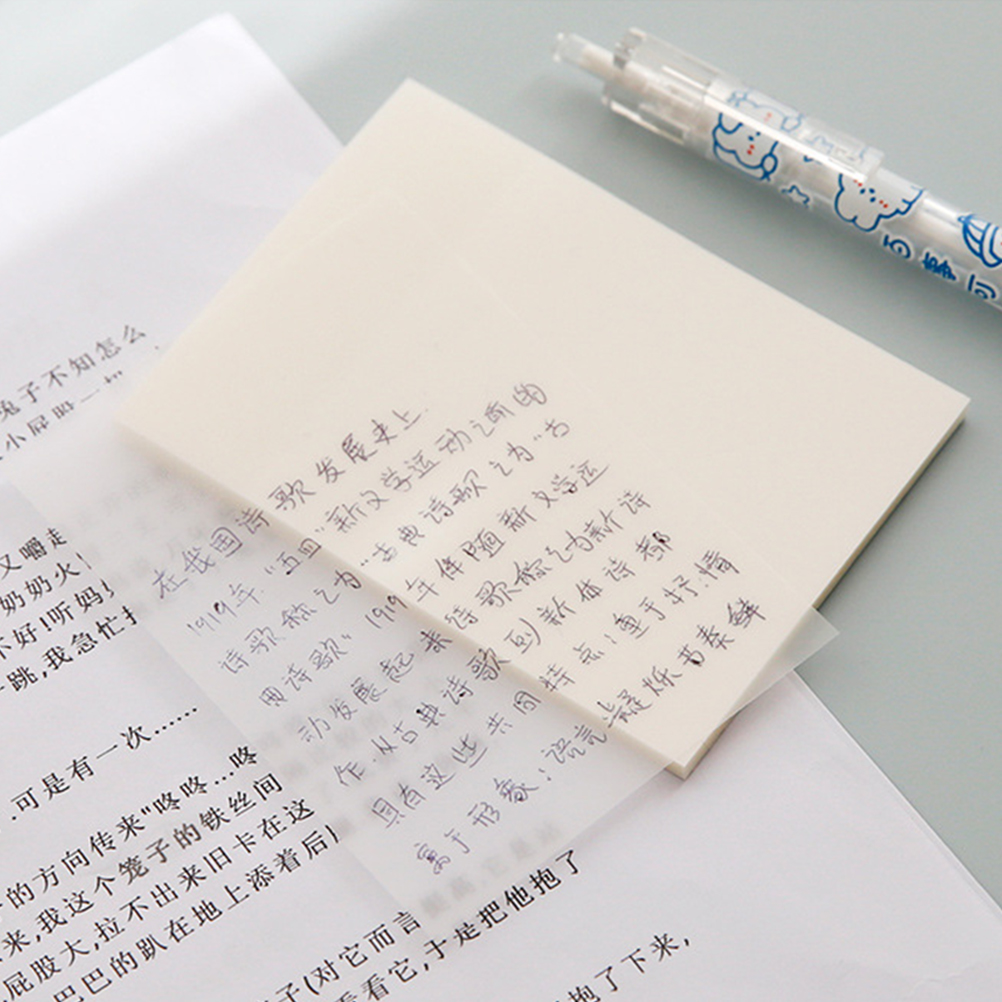 兔子不知怎么
又嚼走
奶奶火
不好!听妈
跳,我急忙
.可是有一次……
的方向传来"咚咚…咚
来,我这个笼子的铁丝间
屁股大,拉不出来旧卡在这
巴巴的趴在地上添着后
子(对它而言
看看它,于是把他抱了
抱了下来,
在我国诗歌发展史上.
1919年."五四"新文学运动之前的
诗歌称之为"古典诗歌之为"古
用诗歌。1919年伴随新文学运
动发展起来诗歌称之为新诗
作.从古典诗歌到新体诗都
具有这些共同特点:重于抒.情
寓于形象:语言凝炼节奏鲜
百事可